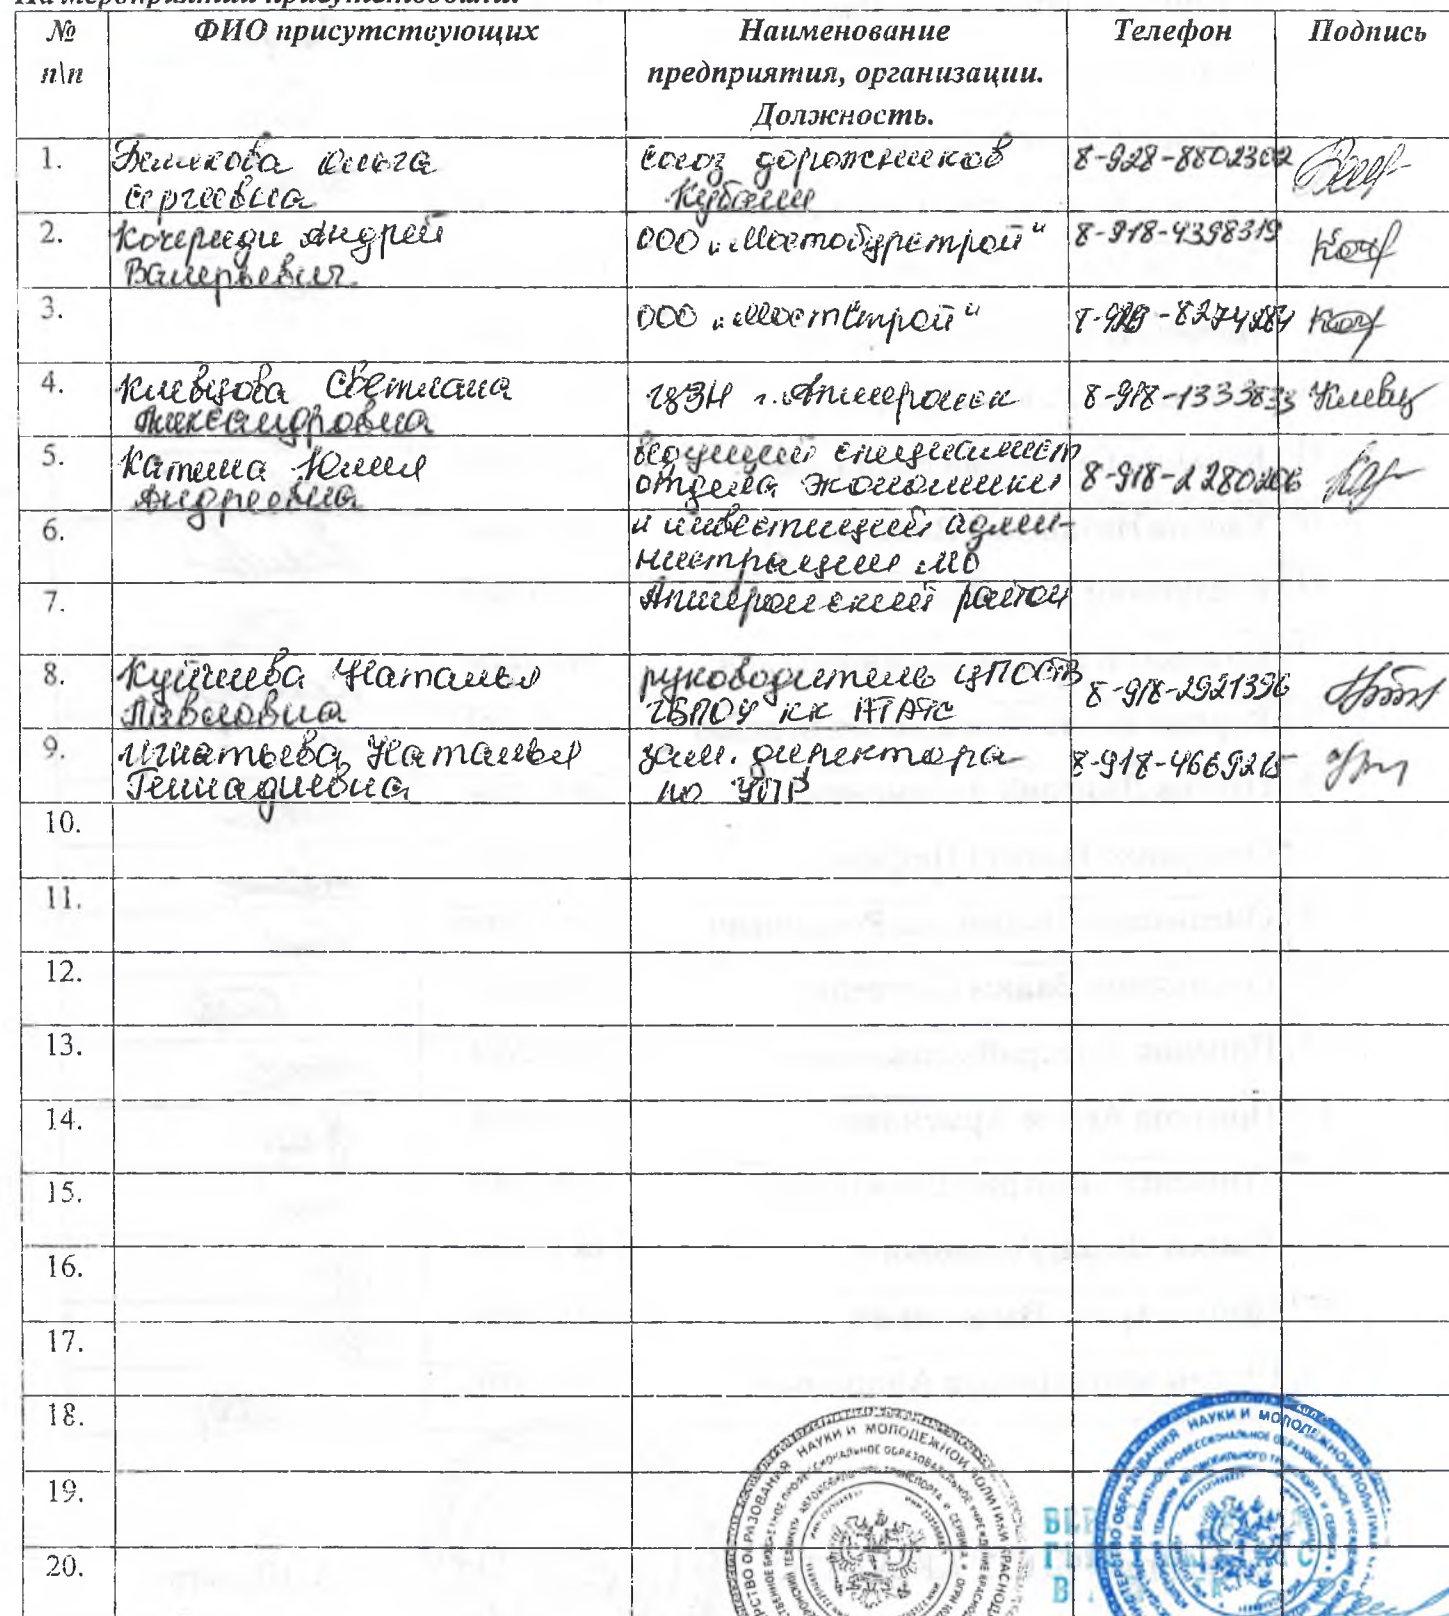 На мероприятии присутствовали:
№ п\п ФИО присутствующих Наименование предприятия, организации. Должность. Телефон Подпись
1. Беликова Ольга Сергеевна Союз дорожников Кубани 8-928-8802302
2. Кочереди Андрей Валерьевич. ООО "Мостодорстрой" 8-918-4398319
3. ООО "МостСтрой"
4. Клевцова Светлана Александровна ЦЗН г. Апшеронск 8-918-1333833 Клевц
5. Катина Юлия Андреевна ведущий специалист отдела экономики 8-918-2280206
6. и инвестиций админи-нистрации МО
7. Апшеронский район
8. Наталья Павловна руководитель ЦПОСТВ ГБПОУ КК АТАТС 8-918-2921396
9. Игнатьева Наталья Геннадиевна зам. директора по УПР 8-918-4669215
10.
11.
12.
13.
14.
15.
16.
17.
18.
19.
20.
НАУКИ И МОЛОДЕЖНОЙ ПОЛИТИКИ
НАУКИ И МОЛОДЕЖНОЙ ПОЛИТИКИ